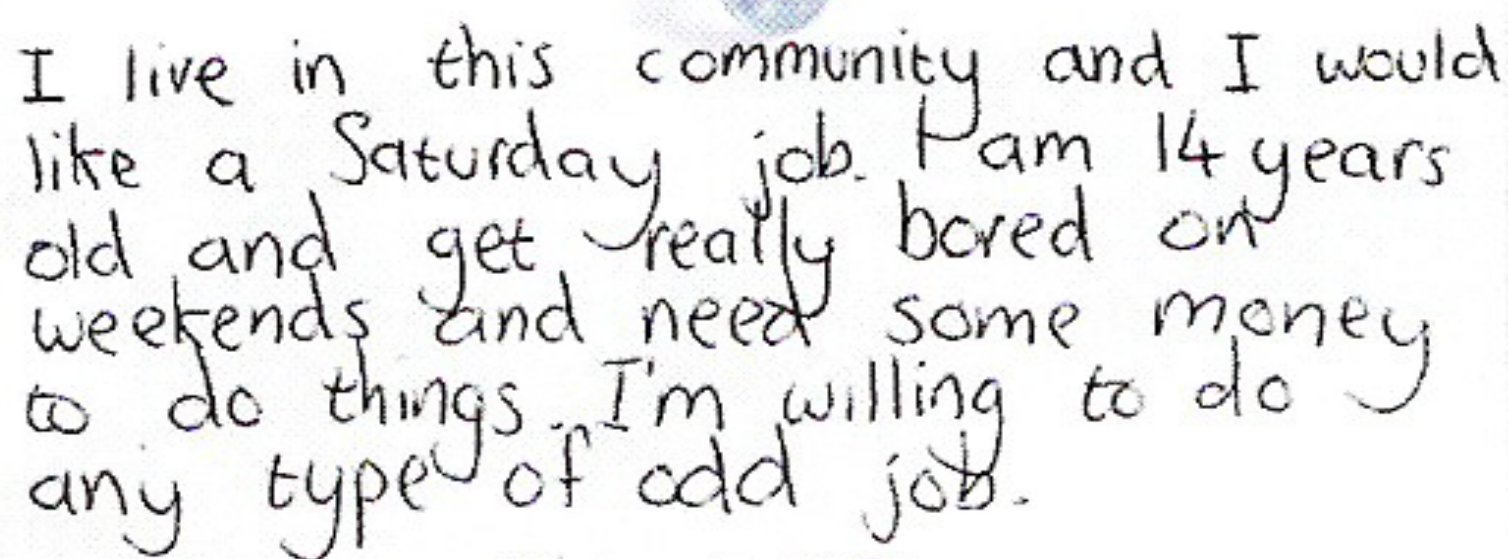 I live in this community and I would
like a Saturday job. I am 14 years
old and get really bored on
weekends and need some money
to do things. I'm willing to do
any type of odd job.